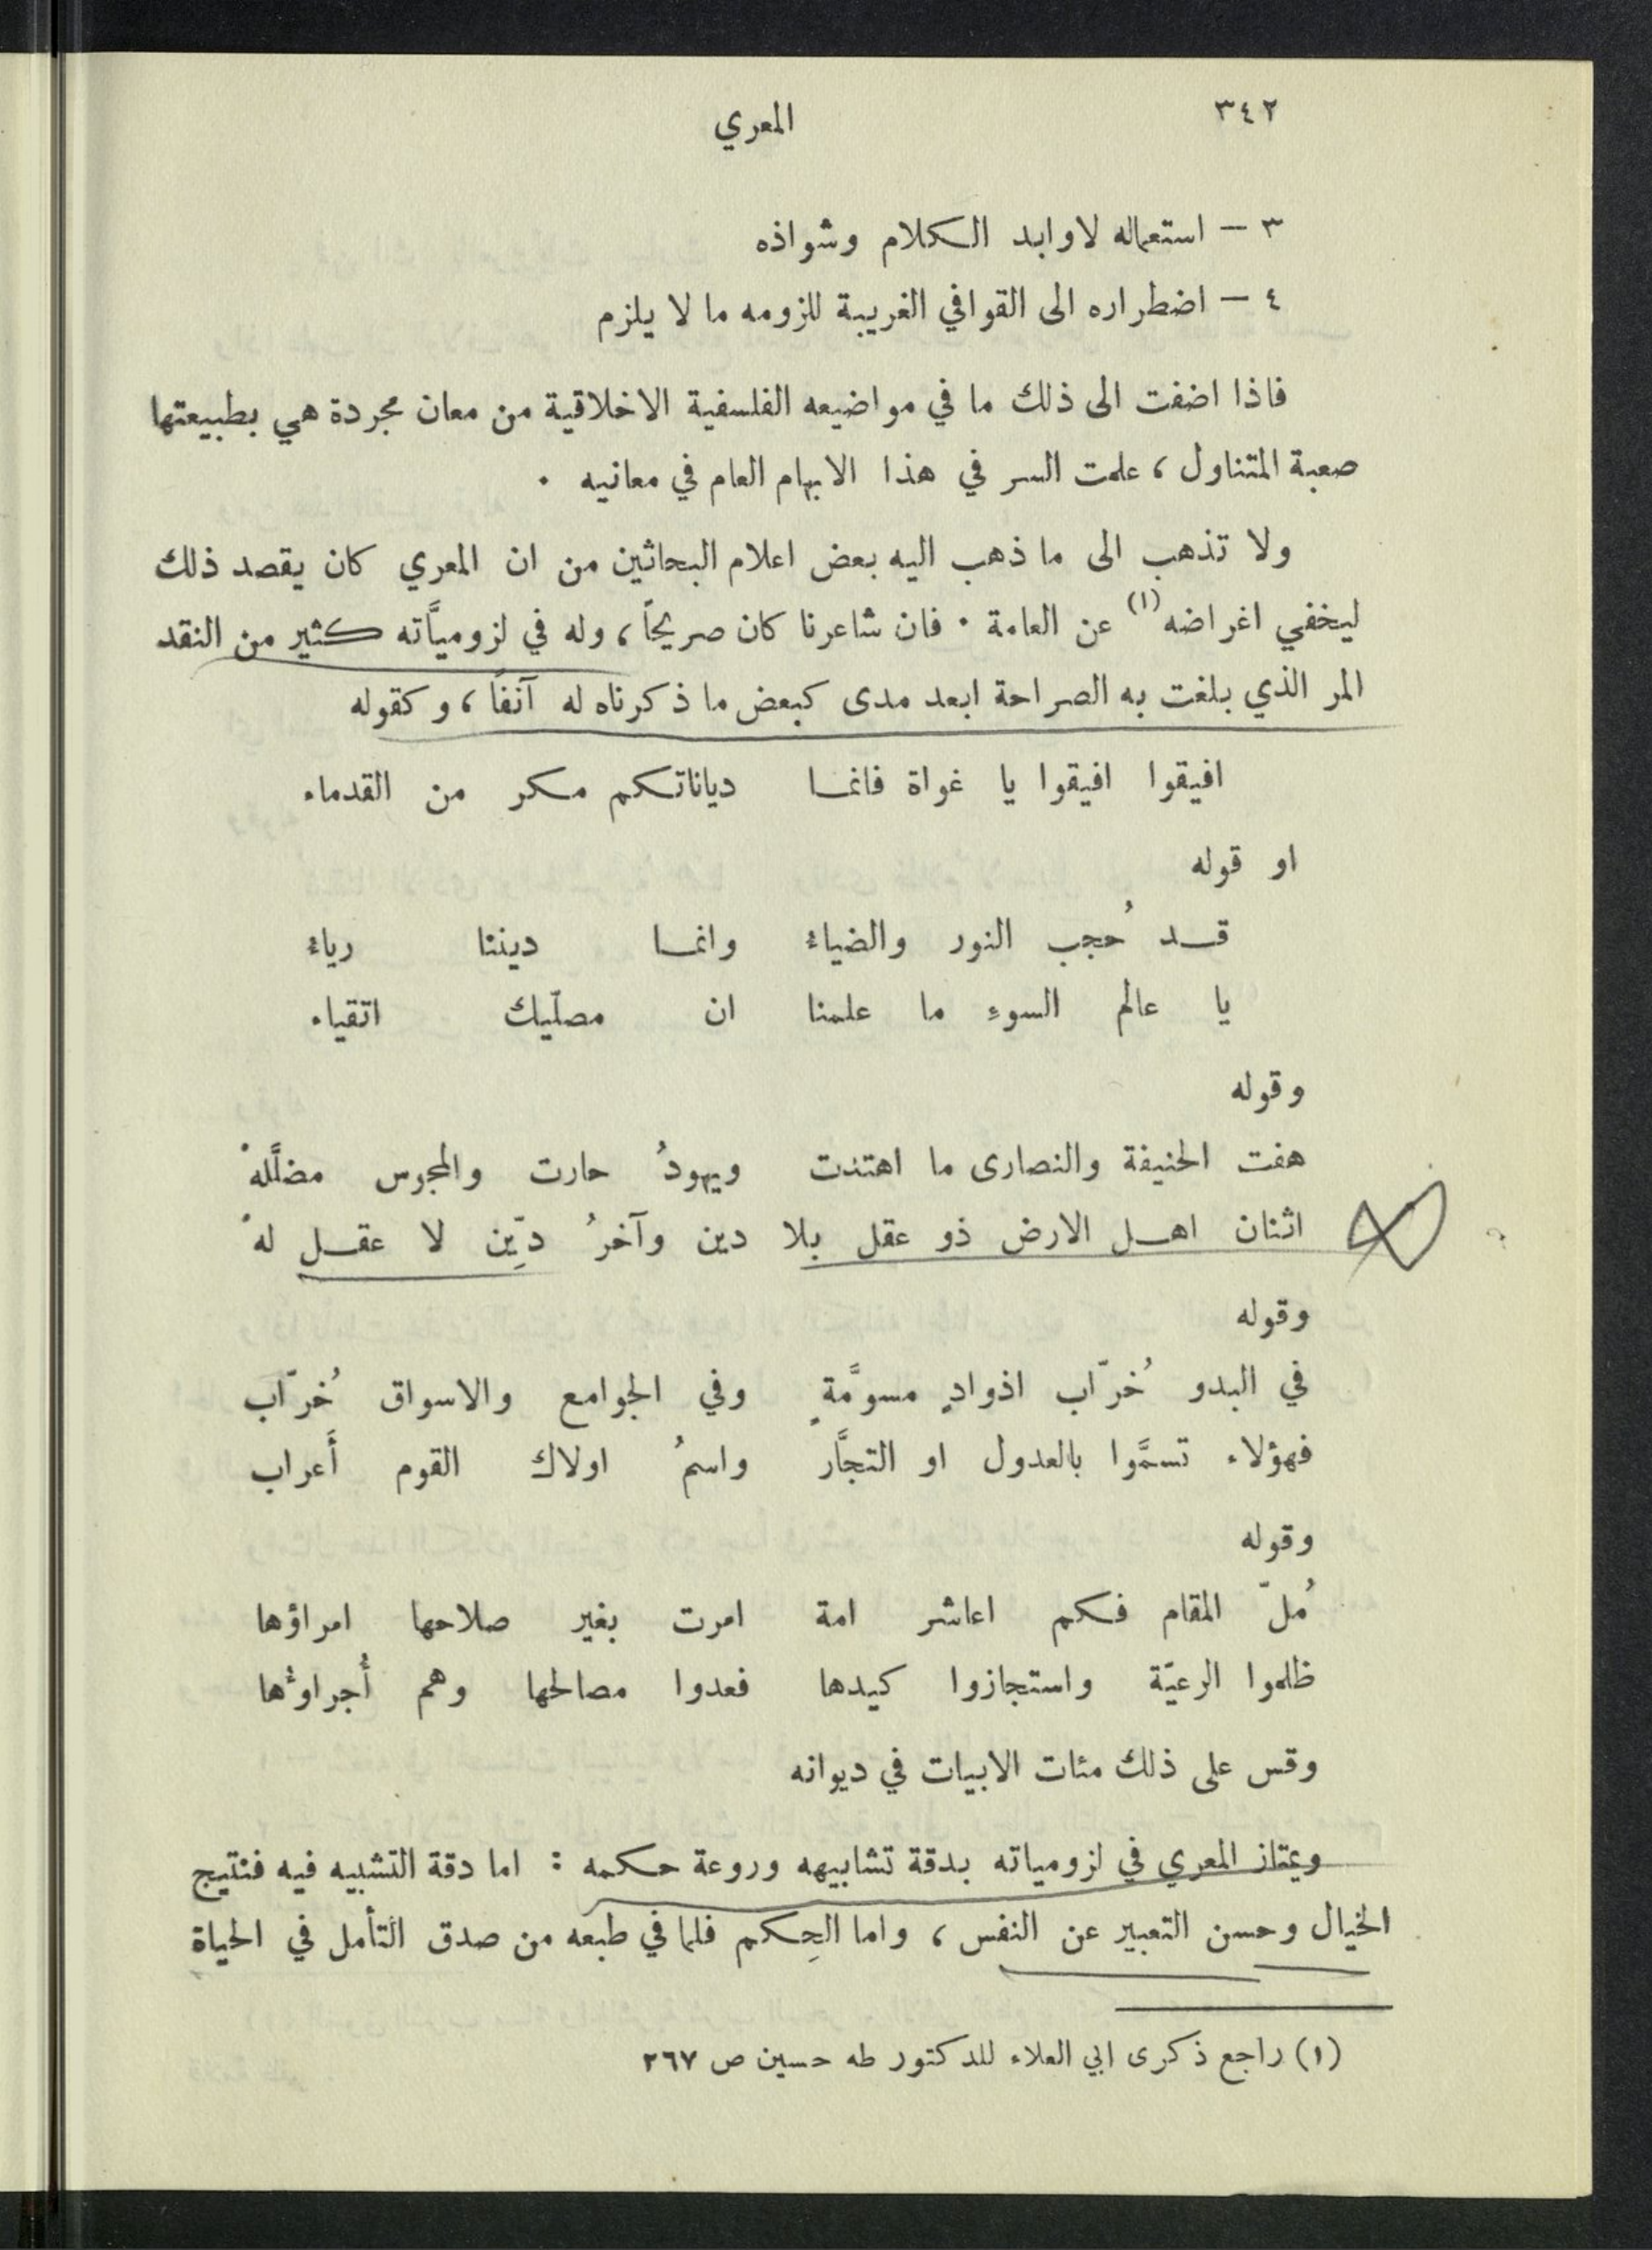 ٣٤٢
المعري
٣ – استعماله لاوابد الكلام وشواذه
٤ – اضطراره الى القوافي الغريبة للزومه ما لا يلزم
فاذا اضفت الى ذلك ما في مواضيعه الفلسفية الاخلاقية من معان مجردة هي بطبيعتها
صعبة المتناول ، علمت السر في هذا الابهام العام في معانيه .
ولا تذهب الى ما ذهب اليه بعض اعلام البحاثين من ان المعري كان يقصد ذلك
ليخفي اغراضه (١) عن العامة . فان شاعرنا كان صريحاً ، وله في لزوميَّاته كثير من النقد
المر الذي بلغت به الصراحة ابعد مدى كبعض ما ذكرناه له آنفاً ، وكقوله
افيقوا افيقوا يا غواة فانما دياناتكم مكر من القدماء
او قوله
قد حُجب النور والضياءُ وانما ديننا رياءُ
يا عالم السوءِ ما علمنا ان مصلّيك اتقياء
وقوله
هفت الحنيفة والنصارى ما اهتدت ويهودُ حارت والمجوس مضلَّلهْ
اثنان اهل الارض ذو عقل بلا دين وآخرُ ديِّن لا عقل لهْ
وقوله
في البدو خُرّاب اذوادٍ مسوَّمةٍ وفي الجوامع والاسواق خُرّاب
فهؤلاء تسمَّوا بالعدول او التجَّار واسمُ اولاك القوم أَعراب
وقوله
مُلّ المقام فكم اعاشر امة امرت بغير صلاحها امراؤها
ظلموا الرعيّة واستجازوا كيدها فعدوا مصالحها وهم أُجراوُها
وقس على ذلك مئات الابيات في ديوانه
ويمتاز المعري في لزومياته بدقة تشابيهه وروعة حكمه : اما دقة التشبيه فيه فنتيج
الخيال وحسن التعبير عن النفس ، واما الحِكم فلما في طبعه من صدق التأمل في الحياة
(١) راجع ذكرى ابي العلاء للدكتور طه حسين ص ٢٦٧